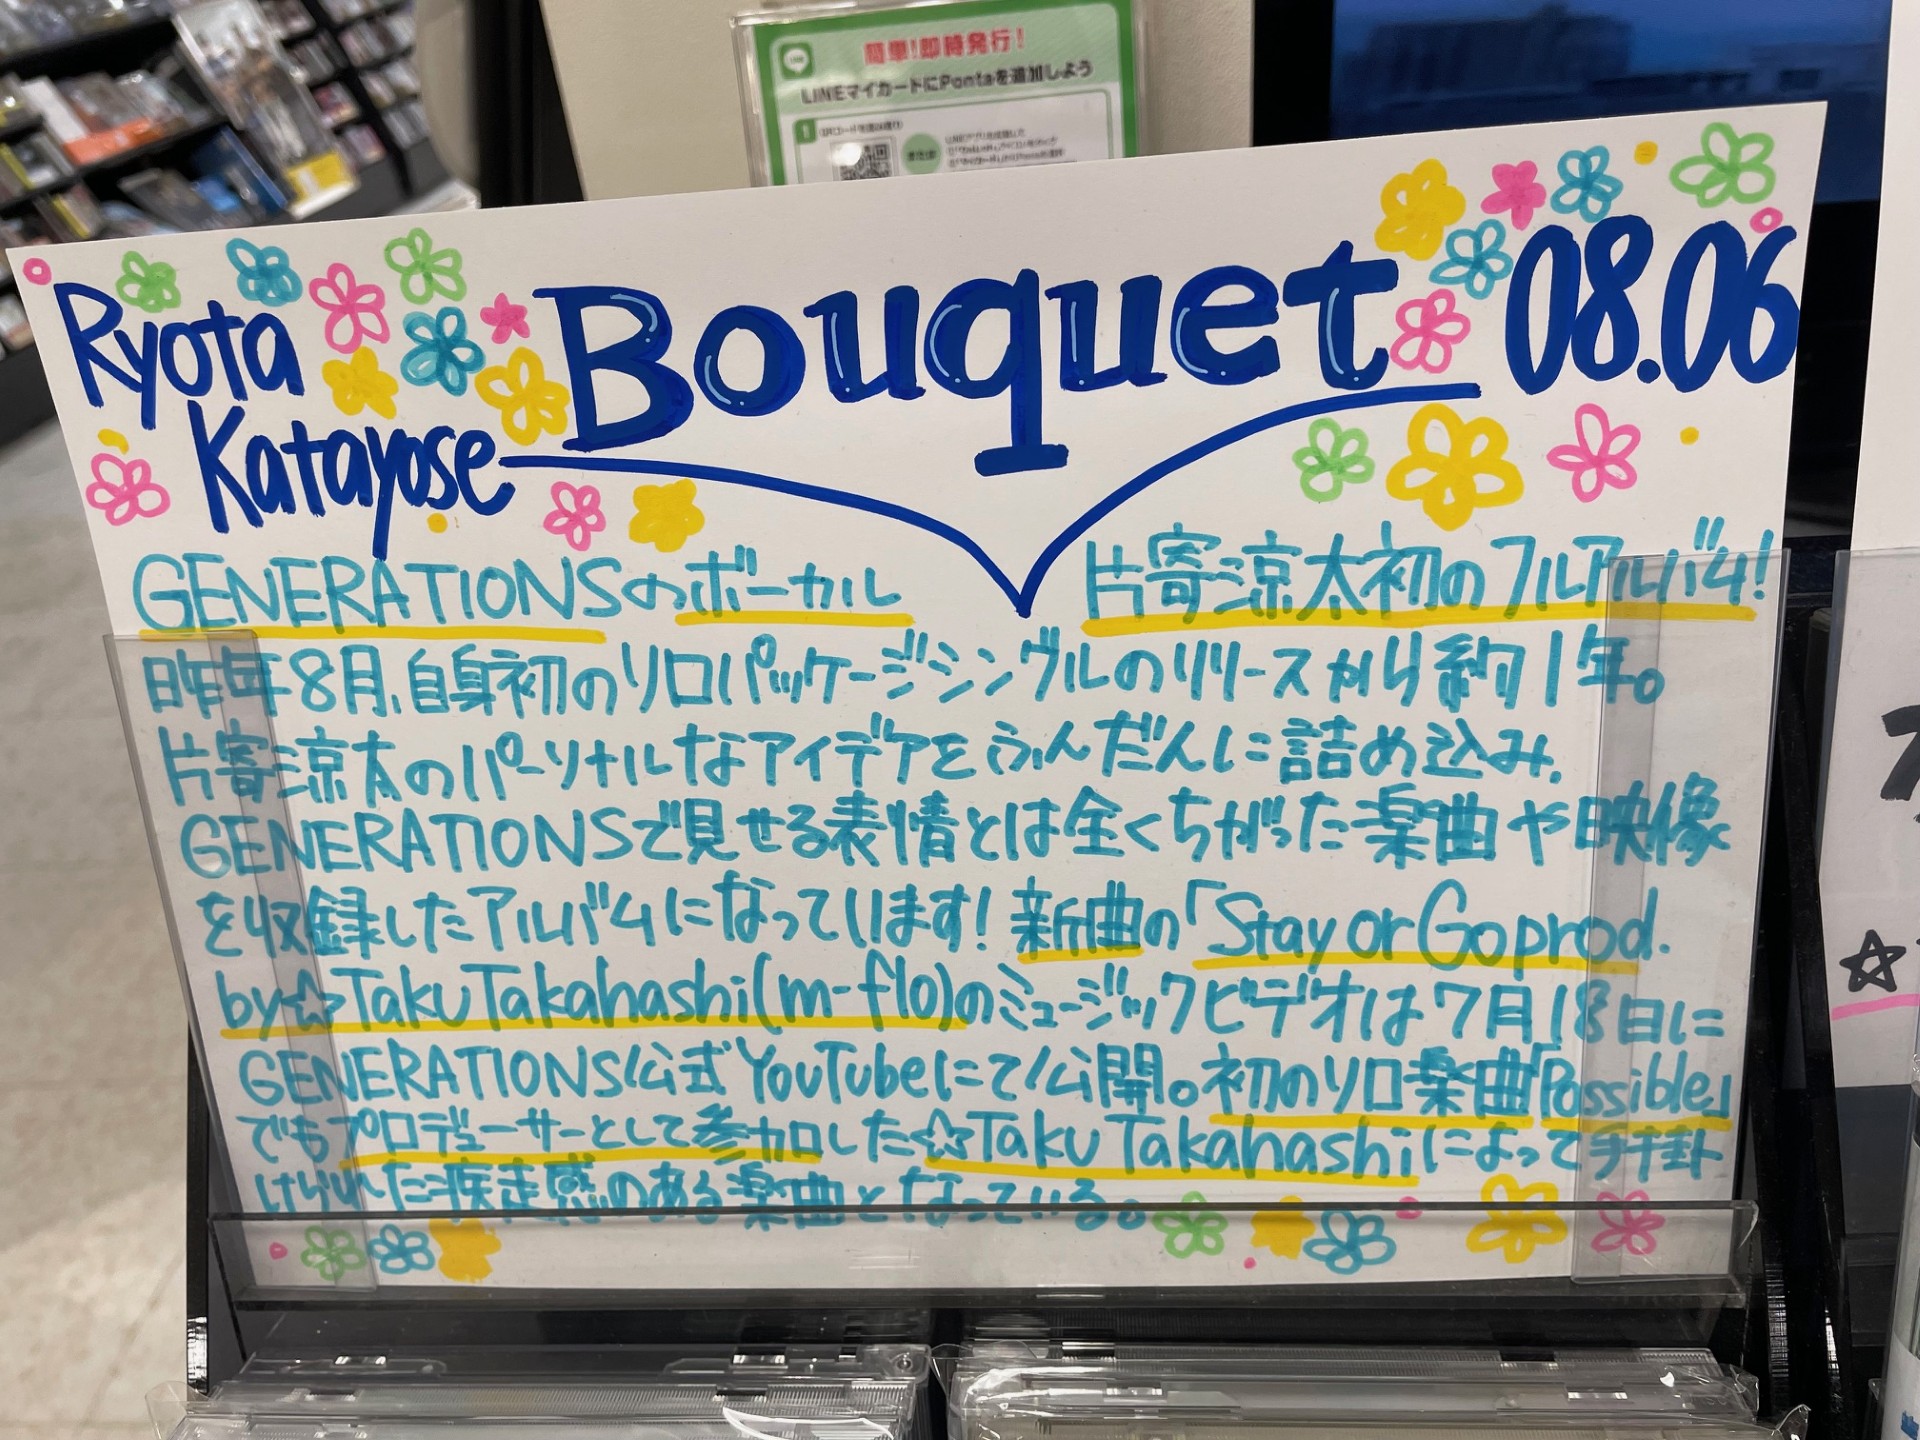 簡単!即時発行!
LINEマイカードにPontaを追加しよう
1
または
Ryota
Katayose
Bouquet
08.06
GENERATIONSのボーカル 片寄涼太初のフルアルバム!
昨年8月、自身初のソロパッケージシングルのリリースから約1年。
片寄涼太のパーソナルなアイデアをふんだんに詰め込み、
GENERATIONSで見せる表情とは全くちがった楽曲や映像
を収録したアルバムになっています!新曲の「Stay or Go prod.
by☆Taku Takahashi(m-flo)のミュージックビデオは7月18日に
GENERATIONS公式YouTubeにて公開。初のソロ楽曲「Possible」
でもプロデューサーとして参加した☆Taku Takahashiによって手掛
けられた疾走感のある楽曲となっている。
☆